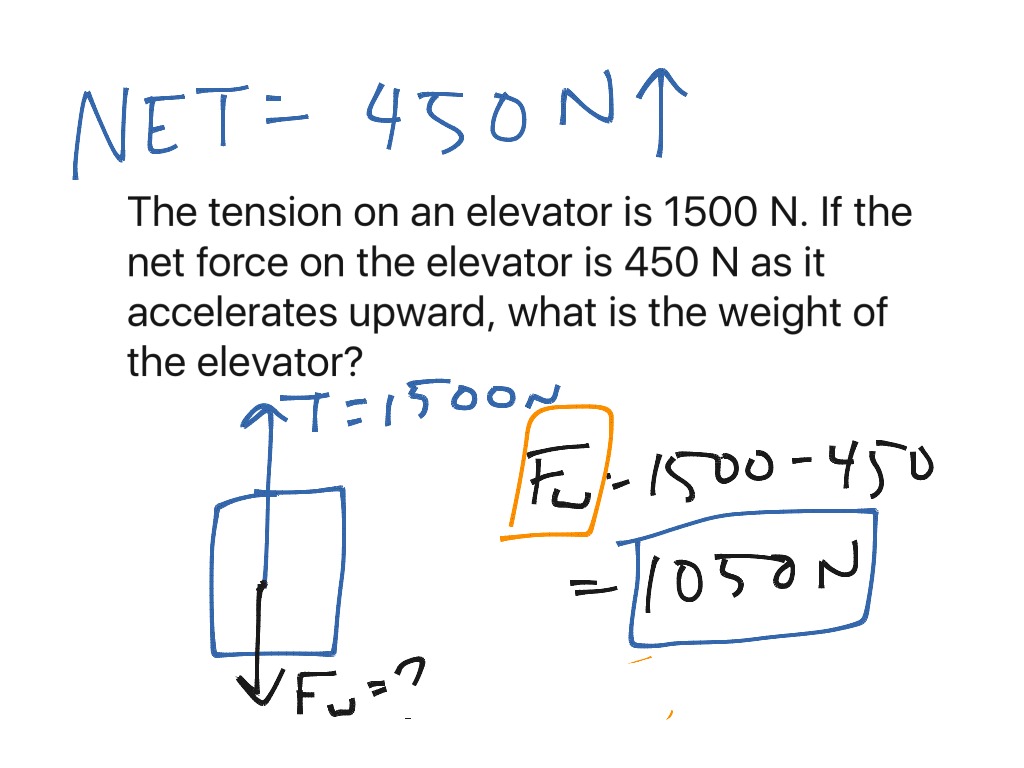 NET = 450 N ↑
The tension on an elevator is 1500 N. If the
net force on the elevator is 450 N as it
accelerates upward, what is the weight of
the elevator?
T = 1500 N
Fw = 1500 - 450
= 1050 N
Fw = ?